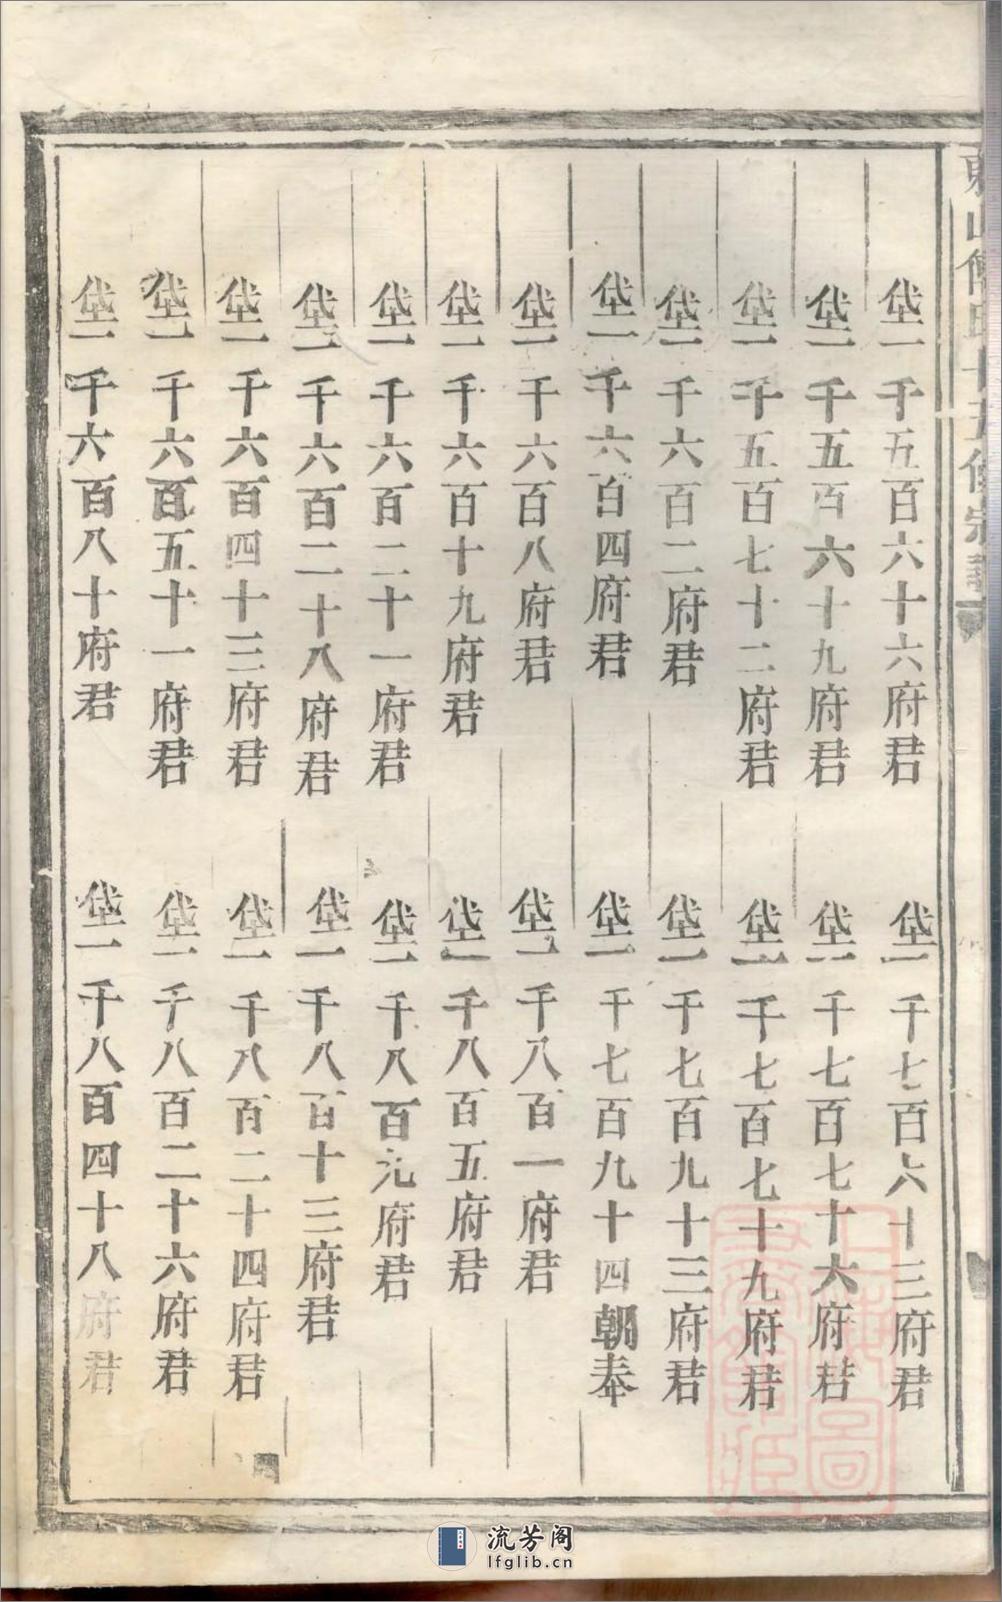 東山氏十五修宗譜
垈一千五百六十六府君
垈一千五百六十九府君
垈一千五百七十二府君
垈一千六百二府君
垈一千六百四府君
垈一千六百八府君
垈一千六百十九府君
垈一千六百二十一府君
垈一千六百二十八府君
垈一千六百四十三府君
垈一千六百五十一府君
垈一千六百八十府君
垈一千七百六十三府君
垈一千七百七十六府君
垈一千七百七十九府君
垈一千七百九十三府君
垈一千七百九十四朝奉
垈一千八百一府君
垈一千八百五府君
垈一千八百九府君
垈一千八百十三府君
垈一千八百二十四府君
垈一千八百二十六府君
垈一千八百四十八府君
流芳阁
lfglib.cn